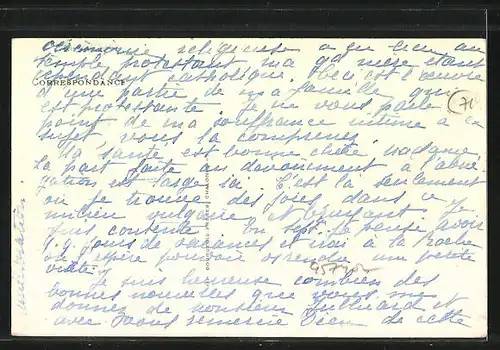 cérémonie religieuse a eu lieu au
temple protestant ma gd mère étant
cependant catholique. Ceci est l'œuvre
CORRESPONDANCE
d'une partie de ma famille qui
est protestante. Je ne vous parle
(71)
point de ma souffrance intime à ce
sujet, vous la comprenez.
Ma santé est bonne chère Madame
la part faite au dévouement à l'abné
gation est large ici. C'est là seulement
où je trouve des joies dans ce
milieu vulgaire et bruyant. Je
suis contente en sept. je pense avoir
q.q. jours de vacances et irai à la Roche
où j'espère pouvoir vous rendre une petite
visite.
Je suis heureuse combien des
bonnes nouvelles que vous me
donnez de monsieur et
avec vous remercie Dieu de cette